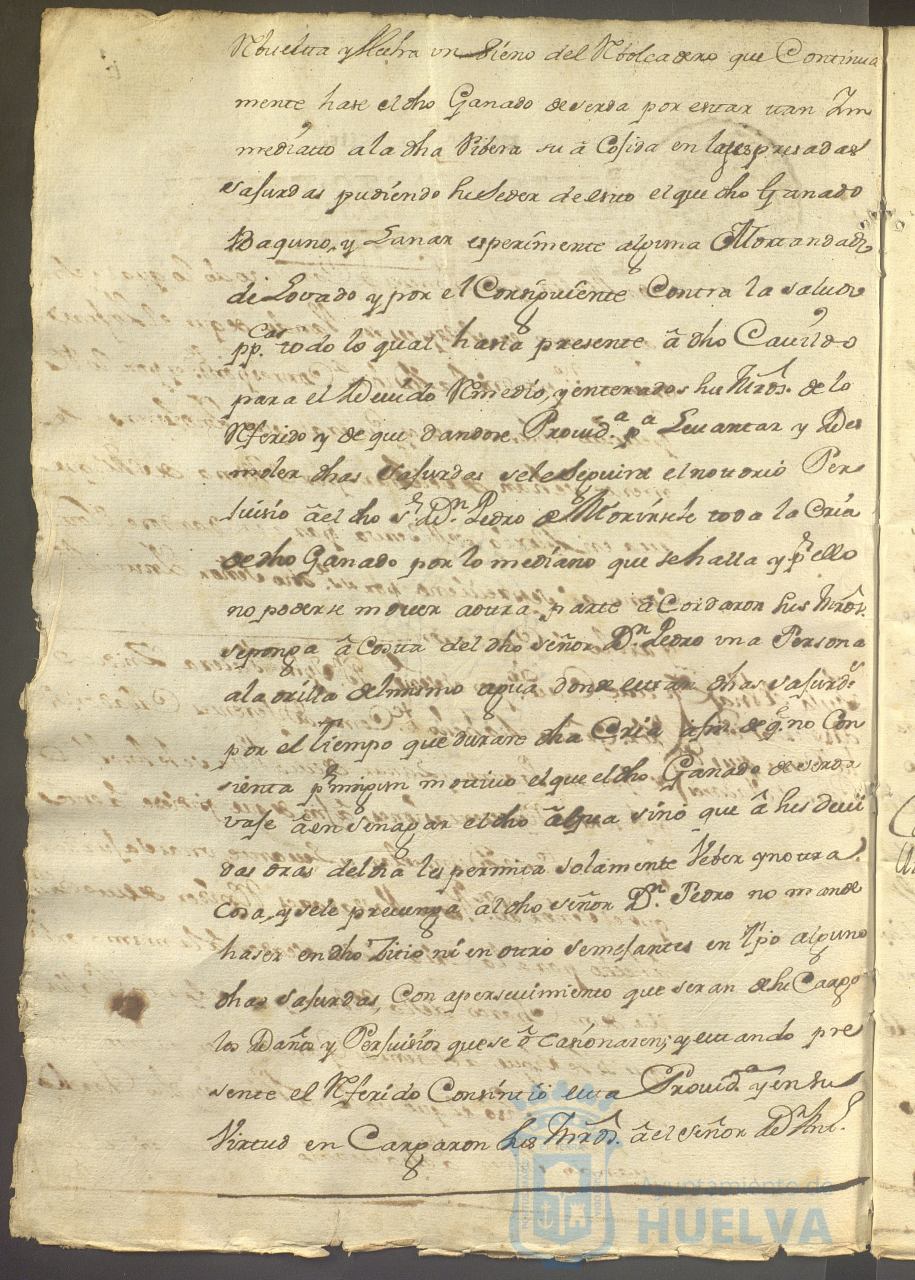 Rbuelta y hecha un sieno del Rbolcadero que Continua
mente hase el dho Ganado de serda por estar tan Im
mediatto a la dha Ribera su acojida en las espresadas
safurdas pudiendo suseder de esto el que dho Ganado
Baquno, y Lanar esperimente alguna Mortandad
de Lovado y por el Consiguiente Contra la salud
ppca. todo lo qual hasia presente â dho Cavildo
para el Devido Remedio, y enterados sus Mrds. de lo
Referido y de que dandose Provida. pa. Levantar y Des
moler dhas safurdas sele seguira el notorio Per
juisio â el dho sr. Dn. Pedro de Morirsele toda la Cria
de dho Ganado por lo mediano que se halla y pr. ello
no poderse mover a otra parte acordaron sus Mrds.
se ponga â Costa del dho señor Dn. Pedro una Persona
a la orilla del mismo agua donde estan dhas safurds.
por el Tiempo que durare dha Cria a fin de q. no Con
sienta pr. ningun motivo el que el dho Ganado de serda
vaje â ensenagar el dho agua sino que â sus devi
das oras del dia les permita solamente Veber y no otra
Cosa, y sele prevenga al dho señor Dn. Pedro no mande
haser en dho Zitio ni en otro semejantes en tpo alguno
dhas safurdas, con apersevimiento que seran de su Cargo
los Daños y Perjuisios que se ocasionaren; y estando pre
sente el Referido Consintio esta Provida. y en su
Virtud en Cargaron sus Mrds. â el señor Dn. Anto.
Ayuntamiento de
HUELVA